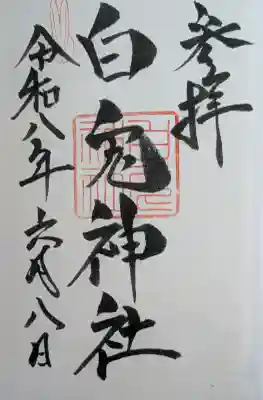 参拝
白兎神社
令和八年六月八日